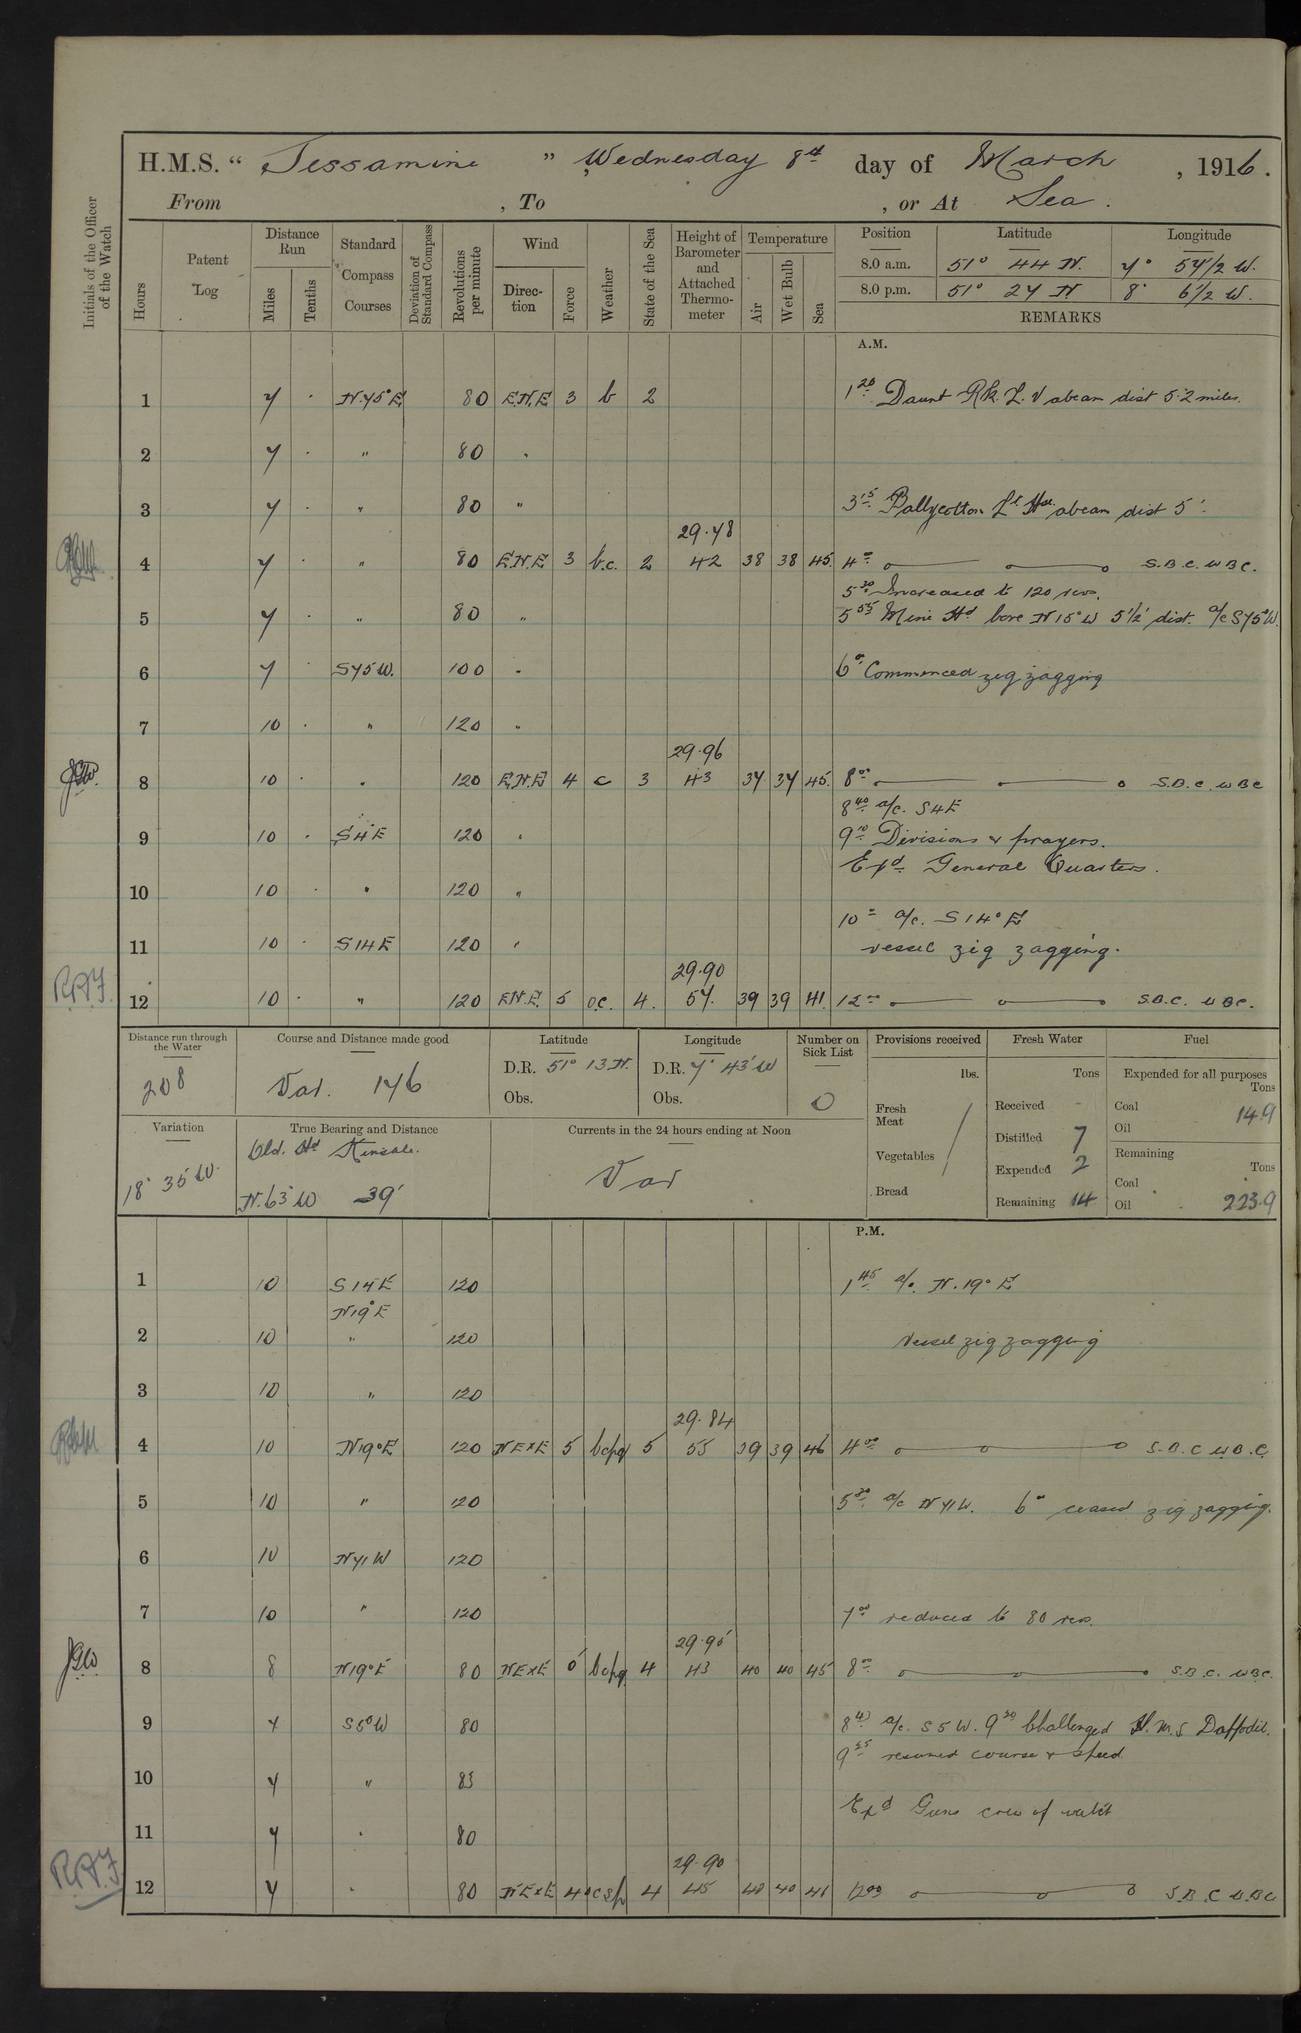 H.M.S. “ Jessamine ” , Wednesday 8th day of March , 1916 .
From , To , or At Sea .
Initials of the Officer of the Watch
Hours
Patent Log
Distance Run
Miles
Tenths
Standard Compass Courses
Deviation of Standard Compass
Revolutions per minute
Wind
Direction
Force
Weather
State of the Sea
Height of Barometer and Attached Thermometer
Temperature
Air
Wet Bulb
Sea
Position Latitude Longitude
8.0 a.m. 51° 44 N. 7° 57 1/2 W.
8.0 p.m. 51° 27 N 8° 6 1/2 W.
REMARKS
A.M.
1 7 . N.75°E 80 E.N.E 3 b 2 1 20 Daunt Rk. L.V abeam dist 5.2 miles.
2 7 . " 80 "
3 7 . " 80 " 3 15 Ballycotton Lt Hse abeam dist 5'.
29.78
4 7 . " 80 E.N.E. 3 b.c. 2 42 38 38 45 4 00 S.B.C. WBC.
5 30 Increased to 120 revs.
5 7 . " 80 " 5 55 Mine Hd bore N15°W 5 1/2' dist. a/c S75°W.
6 7 . S75W. 100 " 6 0 Commenced zig zagging
7 10 . " 120 "
29.96
JGW. 8 10 . " 120 E.N.E 4 c 3 43 37 37 45. 8 00 S.B.C. WBC
8 40 a/c. S4E
9 10 . S4°E 120 " 9 10 Divisions & prayers.
Exd General Quarters.
10 10 . " 120 "
10 = a/c. S14°E
11 10 . S14E 120 " vessel zig zagging.
29.90
R.A.F. 12 10 . " 120 E.N.E. 5 oc. 4. 57. 39 39 41. 12 00 S.B.C. WBC.
Distance run through the Water
208
Course and Distance made good
Var. 146
Latitude
D.R. 51° 13 N.
Obs.
Longitude
D.R. 7° 43' W
Obs.
Number on Sick List
0
Provisions received
lbs.
Fresh Meat
Vegetables
Bread
Fresh Water
Tons
Received -
Distilled 7
Expended 2
Remaining 14
Fuel
Expended for all purposes
Tons
Coal
Oil 14.9
Remaining
Tons
Coal
Oil 223.9
Variation
18° 35' W.
True Bearing and Distance
Old. Hd Kinsale.
N.63 W 39'
Currents in the 24 hours ending at Noon
Var
P.M.
1 10 S14E 120 1 45 a/c. N.19° E
N19°E
2 10 " 120 Vessel zig zagging
3 10 " 120
29.84
4 10 N19°E 120 NExE 5 bcpq 5 55 39 39 46 4 00 S.B.C W.B.C.
5 10 " 120 5 30 a/c N71W. 6 0 ceased zig zagging.
6 10 N71W 120
7 10 " 120 7 00 reduced to 80 revs.
29.95
JGW 8 8 N19°E 80 NExE bcpq 4 43 40 40 45 8 00 S.B.C. WBC.
9 7 S5°W 80 8 40 a/c. S5W. 9 20 Challenged H.M.S Daffodil.
9 25 resumed course & speed
10 7 "
Exd Guns crew of watch
11 7 " 80
29.90
R.A.F. 12 7 " 80 NExE 4 ocsp 4 45 40 40 12 00 S.B.C W.BC